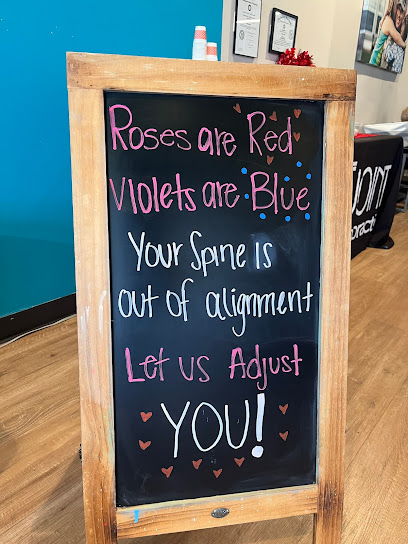 Roses are Red
Violets are Blue
Your Spine is
out of alignment
Let us Adjust
YOU!
JOINT